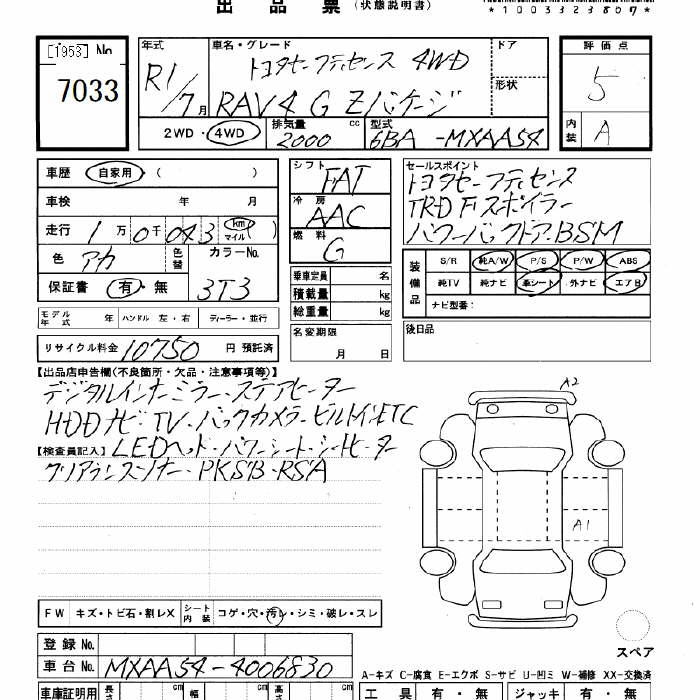 出品票 (状態説明書)
*1003323807*
[1953] No.
7033
年式 R1/7月
車名・グレード トヨタセーフティセンス 4WD
RAV4 G Zパケージ
ドア
形状
評価点 5
内装 A
2WD・4WD 排気量 2000 cc 型式 6BA-MXAA54
車歴 自家用 ( )
車検 年 月
走行 1万0千043 km マイル ( )
色 アカ 色替 カラーNo. 3T3
保証書 有・無
シフト FAT
冷房 AAC
燃料 G
乗車定員 名
積載量 kg
総重量 kg
名変期限
月 日
セールスポイント
トヨタセーフティセンス
TRD Fスポイラー
パワーバックドア.BSM
装備品 S/R 純A/W P/S P/W ABS
純TV 純ナビ 革シート 外ナビ エアB
ナビ型番：
後日品
モデル年式 年 ハンドル 左・右 ディーラー・並行
リサイクル料金 10750 円 預託済
【出品店申告欄(不良箇所・欠品・注意事項等)】
デジタルインナーミラー・ステアヒーター
HDDナビ・TV・バックカメラ・ビルトインETC
【検査員記入】 LEDヘッド・パワーシート・シートヒーター
クリアランスソナー・PKSB・RSA
A2
A1
FW キズ・トビ石・割レX シート内装 コゲ・穴・汚レ・シミ・破レ・スレ
スペア
登録 No.
車台 No. MXAA54-4006830
A-キズ C-腐食 E-エクボ S-サビ U-凹ミ W-補修 XX-交換済
車庫証明用 長さ cm 幅 cm 高さ cm
工具 有・無 ジャッキ 有・無